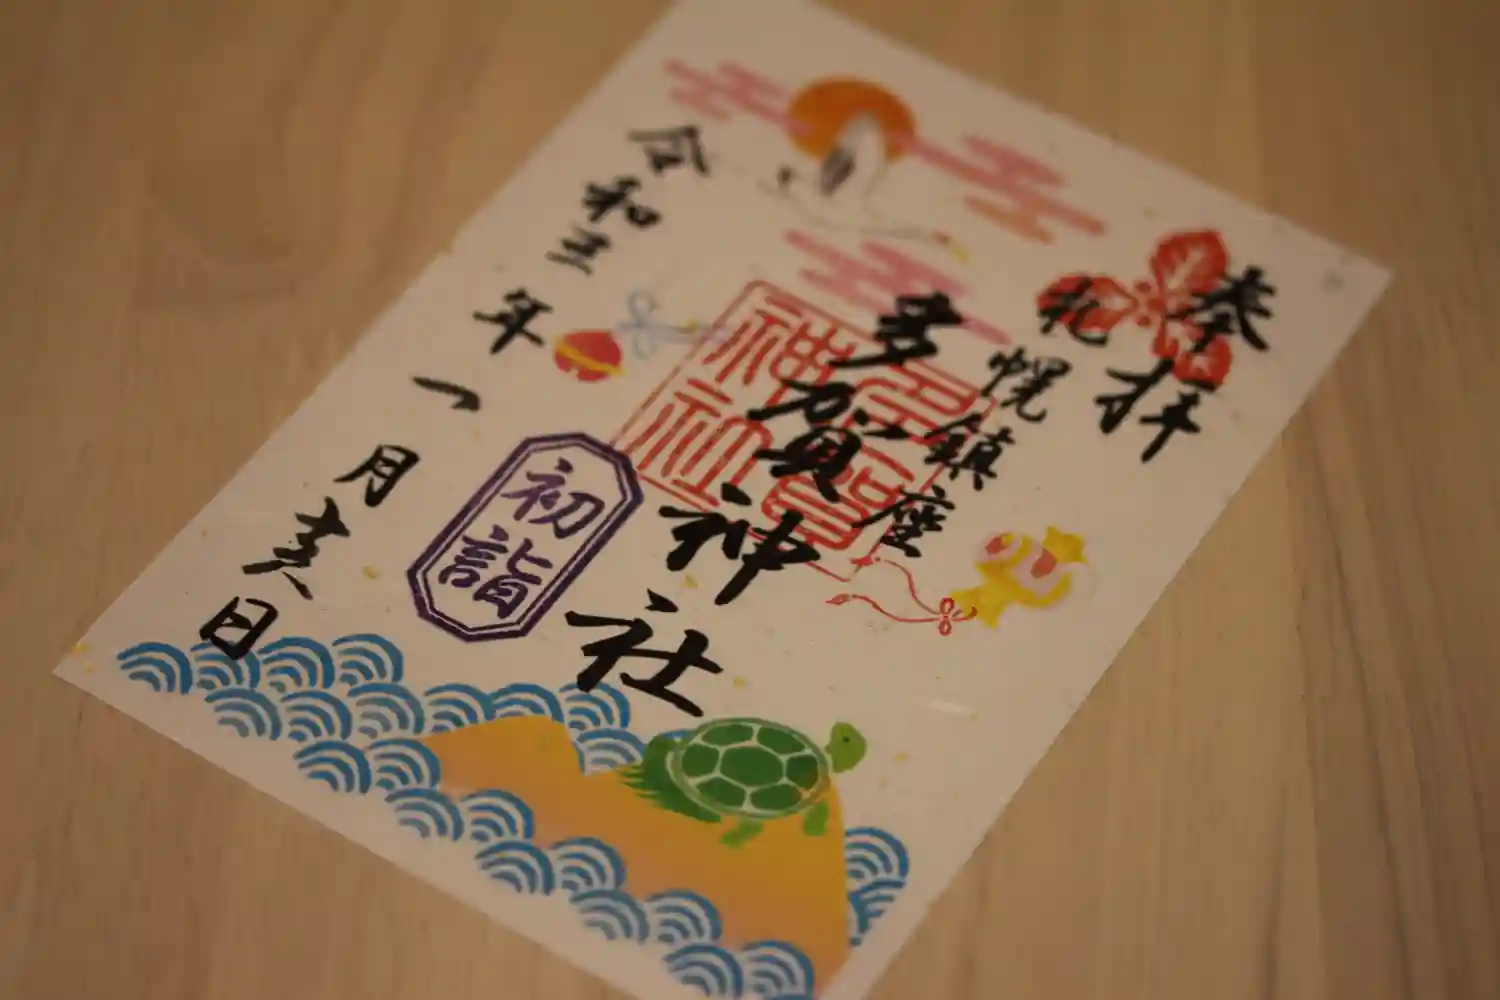 奉拝
札幌鎮座
多賀神社
多賀
神社
初詣
令和三年一月吉日